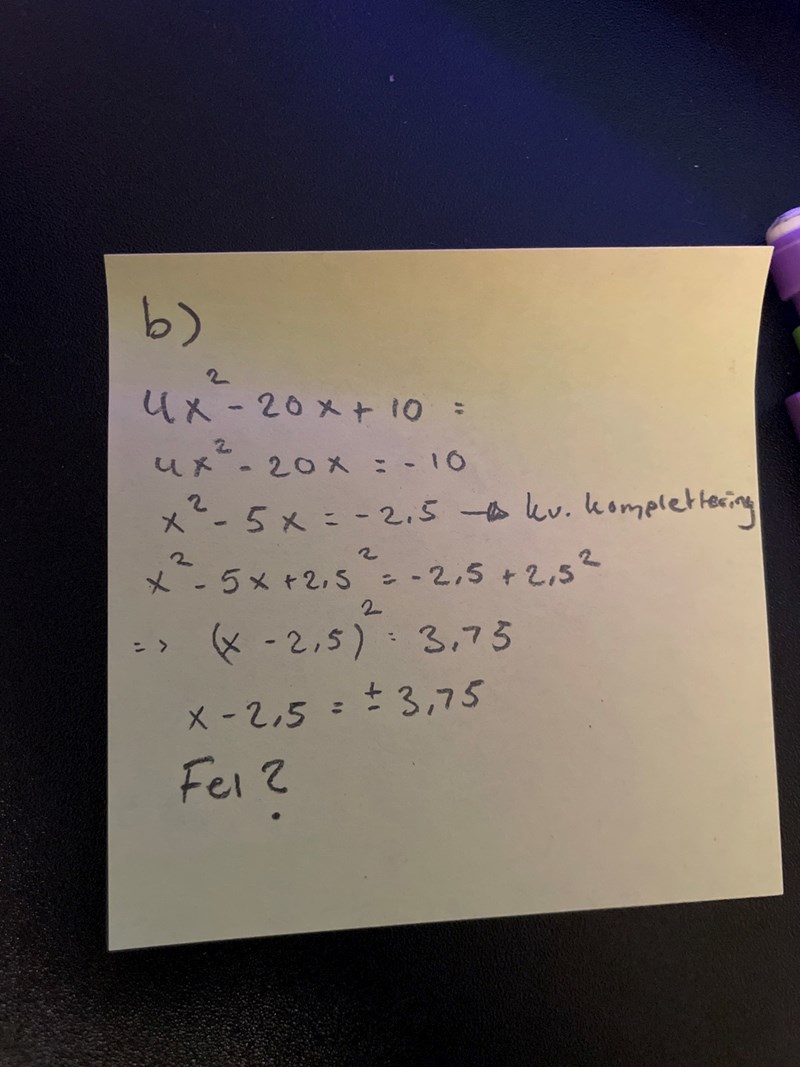 b)
4x² - 20x + 10 =
4x² - 20x = -10
x² - 5x = -2,5 → kv. komplettering
x² - 5x + 2,5² = -2,5 + 2,5²
=> (x - 2,5)² = 3,75
x - 2,5 = ± 3,75
Fel?